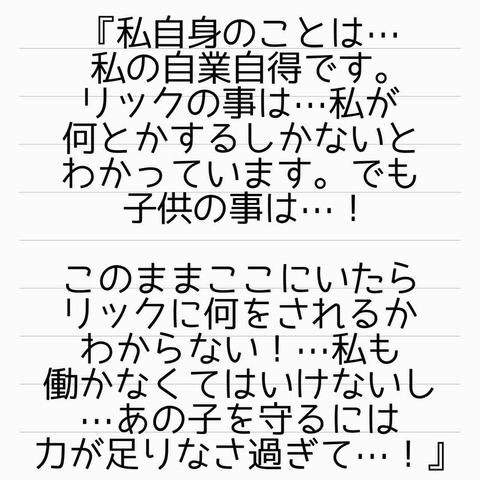 『私自身のことは…
私の自業自得です。
リックの事は…私が
何とかするしかないと
わかっています。でも
子供の事は…！
このままここにいたら
リックに何をされるか
わからない！…私も
働かなくてはいけないし
…あの子を守るには
力が足りなさ過ぎて…！』